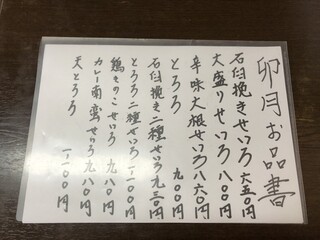 卯月お品書
石臼挽きせいろ 六五〇円
大盛りせいろ 八〇〇円
辛味大根せいろ 八六〇円
とろろ 九〇〇円
石臼挽き二種せいろ 九三〇円
とろろ二種せいろ 一一〇〇円
鶏きのこせいろ 九八〇円
カレー南蛮せいろ 九八〇円
天とろろ 一一〇〇円